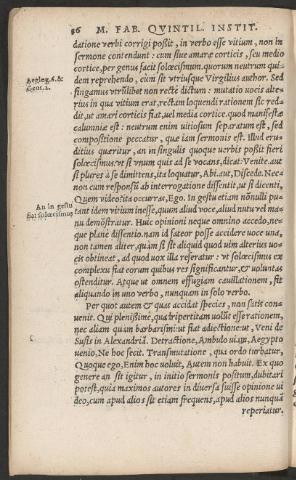 86 M. FAB. QVINTIL. INSTIT.
datione verbi corrigi possit, in verbo esse vitium, non in
sermone contendunt: cum siue amaræ corticis, seu medio
cortice, per genus facit solœcismum, quorum neutrum qui-
dem reprehendo, cùm sit vtriusque Virgilius author. Sed
fingamus vtrũlibet non rectè dictum: mutatio vocis alte-
rius in qua vitium erat, rectam loquendi rationem sic red-
dit, ut amari corticis fiat, uel media cortice. quod manifestæ
calumniæ est: neutrum enim uitiosum separatum est, sed
compositione peccatur, quæ iam sermonis est. Illud eru-
ditius quæritur, an in singulis quoque uerbis possit fieri
solœcismus: vt si vnum quis ad se vocans, dicat: Venite. aut
si plures à se dimittens, ita loquatur, Abi. aut, Discede. Nec
non cum responsũ ab interrogante dissentit, ut si dicenti,
Quem video: ita occurras, Ego. In gestu etiam nõnulli pu-
tant idem vitium inesse, quum aliud voce, aliud nutu vel ma
nu demõstratur. Huic opinioni neque omnino accedo, ne-
que plane dissentio. nam id fateor posse accidere voce una,
non tamen aliter, quàm si sit aliquid quod uim alterius uo-
cis obtineat, ad quod uox illa referatur: vt solœcismus ex
complexu fiat eorum quibus res significantur, & uoluntas
ostenditur. Atque ut omnem effugiam cauillationem, fit
aliquando in uno verbo, nunquam in solo verbo.
Per quot autem & quas accidat species, non satis con-
uenit. Qui plenissimè, quadripertitam uolũt esse rationem,
nec aliam quàm barbarismi: ut fiat adiectione: ut, Veni de
Susis in Alexandriã. Detractione, Ambulo uiam, Aegypto
uenio, Ne hoc fecit. Transmutatione, qua ordo turbatur,
Quoque ego, Enim hoc voluit, Autem non habuit. Ex quo
genere an sit igitur, in initio sermonis positum, dubitari
potest, quia maximos autores in diuersa fuisse opinione ui
deo, cum apud alios sit etiam frequens, apud alios nunquã
reperiatur.
An in gestu
fiat solœcismus